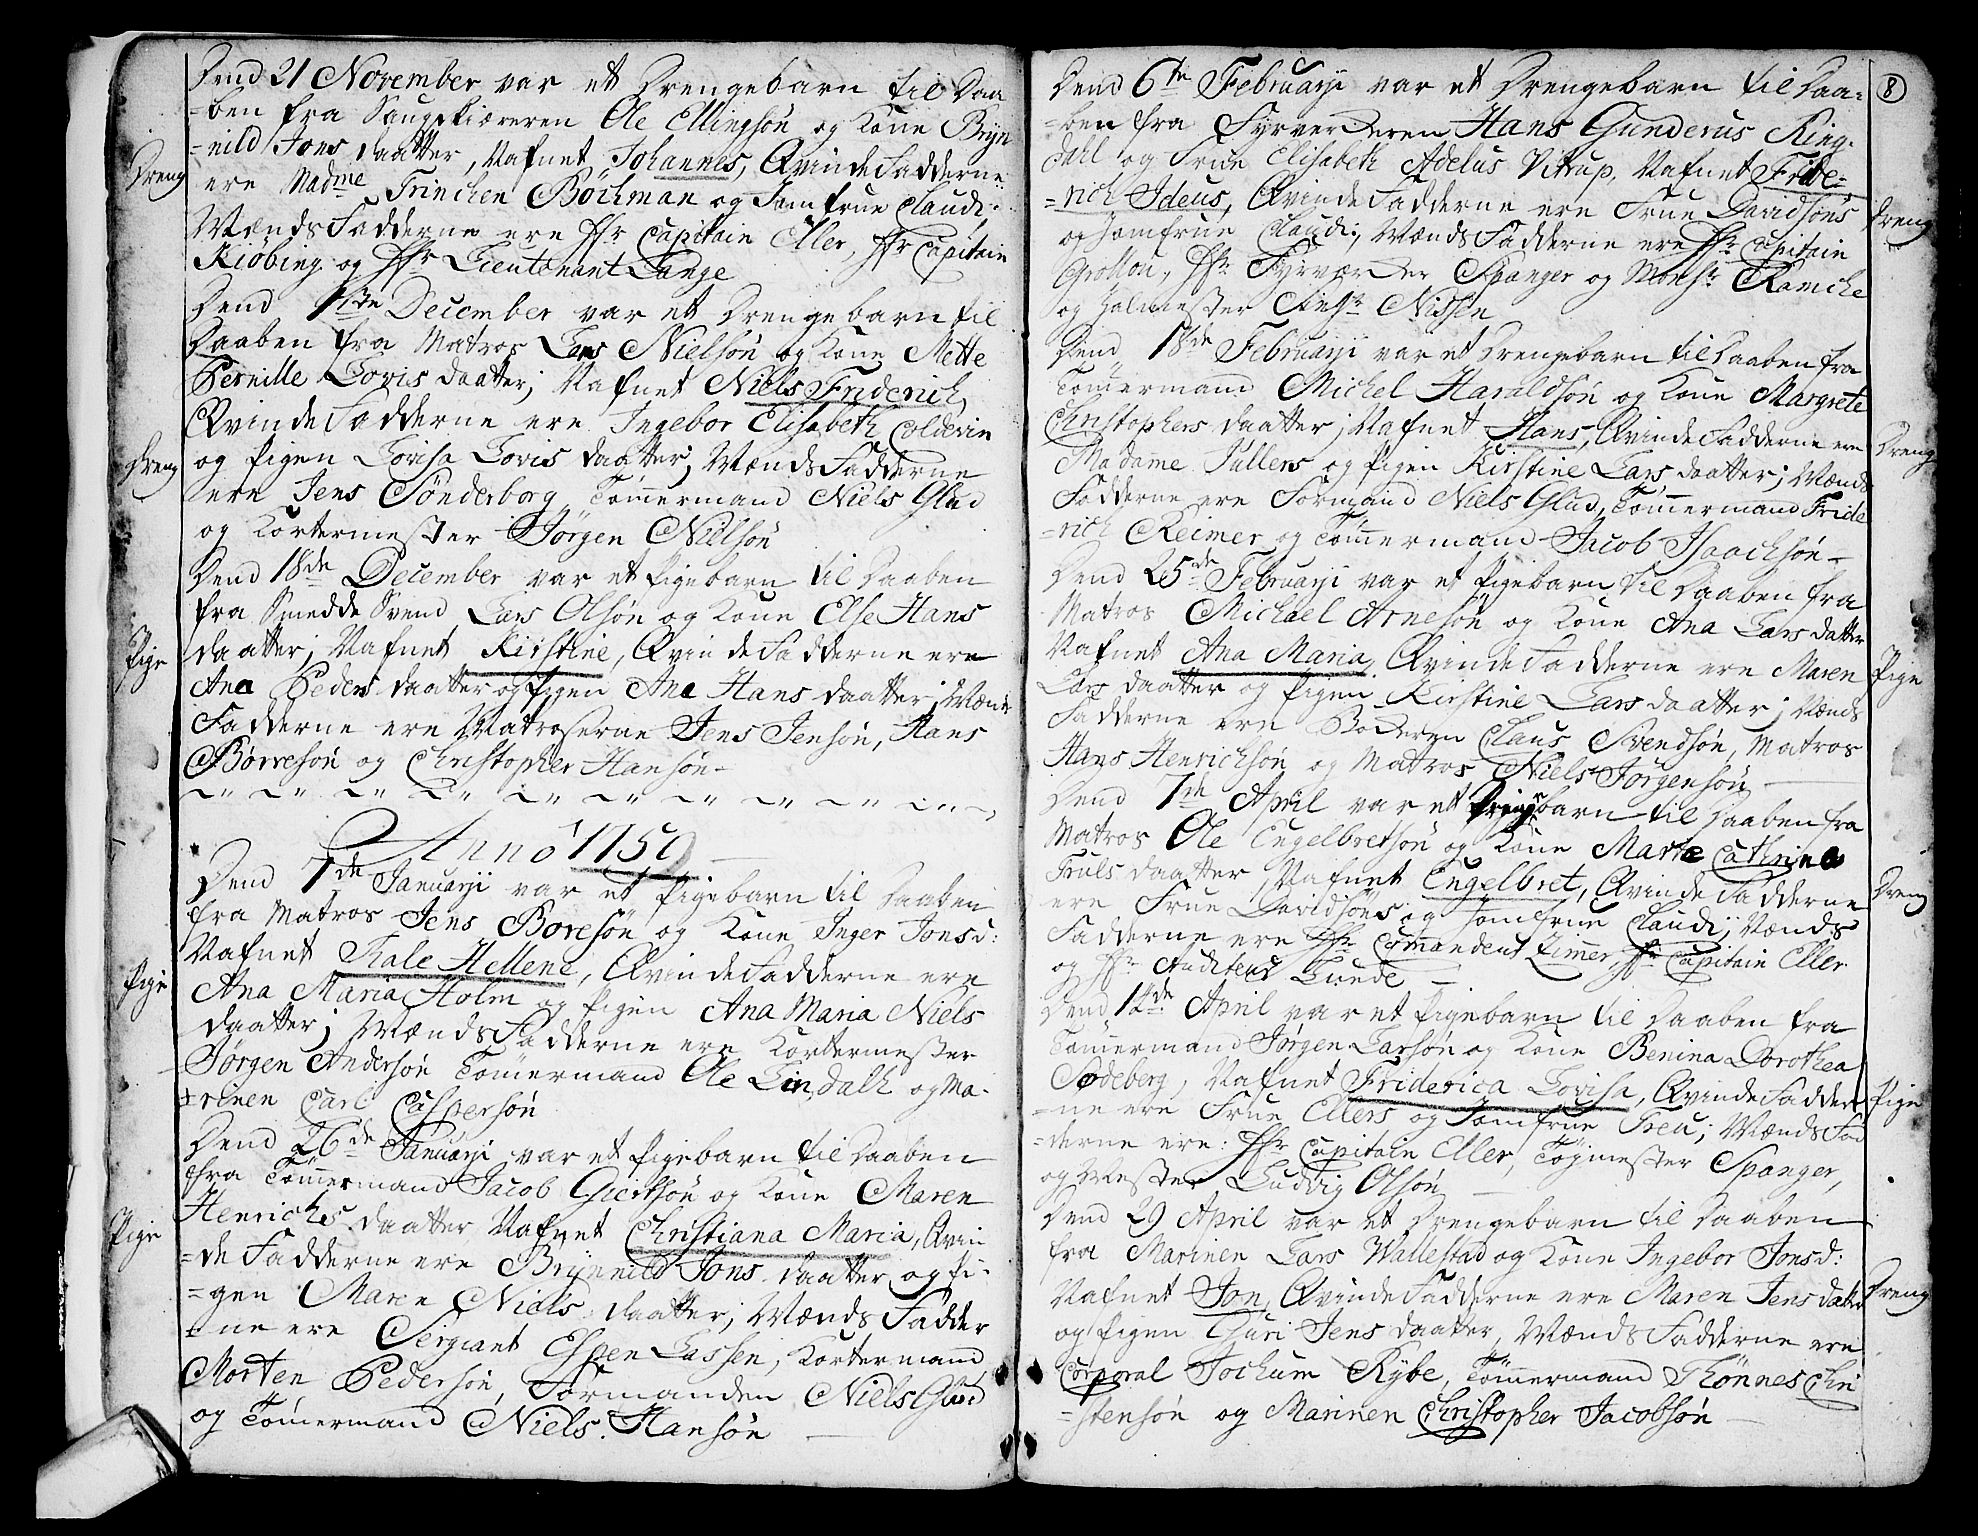 Dend 21 November var et Drengebarn til Daa
=ben fra Saugskiæreren Ole Ellingsön og Kone Bryn
=nild Jons daatter, Nafnet Johannes, QvindeFadderne
Dreng
ere Madme Trinchen Böchman og Jomfrue Claudi:
MændsFadderne ere Hr Capitain Eller, Hr Capitain
Kiöbing og Hr Lieutenant Lange
Dend December var et Drengebarn til
Daaben fra Matros Lars Nielsön og Kone Mette
Pernille Lovis daatter; Nafnet Niels Friderich
QvindeFadderne ere Ingebor Elisabeth Colderin
Dreng
og Pigen Lovisa Lovis daatter, MændsFadderne
ere Jens Sönderborg Tömmermand Niels Glad
og Kortermester Jörgen Nielsön
Dend 18de December var et Pigebarn til Daaben
fra Smedde Svend Lars Olsön og Kone Else Hans
daatter; Nafnet Kirstine, QvindeFadderne ere
Pige
Ana Peders daatter og Pigen Ana Hans daatter; Mænds
Fadderne ere Matroserne Jens Jensön, Hans
Börresön og Christopher Hansön
Anno 1750
Dend 7de Januarji var et Pigebarn til Daaben
fra Matros Jens Boresön og Kone Inger Jonsd:
Nafnet Kale Hellene, QvindeFadderne ere
Pige
Ana Maria Holm og Pigen Ana Maria Niels
daatter; MændsFadderne ere Kortermester
Jörgen Andersön Tömmermand Ole Lindalh og Ma-
=rinen Carl Caspersön
Dend 26de Januarji var et Pigebarn til Daaben
fra Tömmermand Jacob Giertsön og Kone Maren
Henrichs daatter Nafnet Christiana Maria, Qvin
Pige
=de Fadderne ere Brynnild Jons daatter og Pi-
=gen Maren Niels daatter; MændsFadder
=ne ere Sergiant Espen Lassen, Kortermand
Morten Pedersön, Formanden Niels Glad
og Tömmermand Niels Hansön
8
Dend 6te Februarji var et Drengebarn til Daa=
=ben fra Fyrverderen Hans Gunderus Ring-
dahl og Frue Elisabeth Adelus Vitrup, Nafnet Fride=
=rich Ideus, QvindeFadderne ere Frue Davidsöns
Dreng
og Jomfrue Claudi:, MændsFadderne ere Hr Capitain
Grotton, Hr Fyrværder Spanger og Monsr Ramche
og Holmester Nissen
Dend 18de Februarji var et Drengebarn til Daaben fra
Tömmermand Michel Haraldsön og Kone Margrete
Christophers daatter; Nafnet Hans, QvindeFadderne ere
Dreng
Madamme Tullers og Pigen Kirstine Lars daatter; Mænds
Fadderne ere Formand Niels Glad, Tömmermand Fride
=rich Reimer og Tömmermand Jacob Isaachsön
Dend 25de Februarji var et Pigebarn til Daaben fra
Matros Michael Arnesön og Kone Ana Lars datter
Nafnet Ana Maria, QvindeFadderne ere Maren
Pige
Lars daatter og Pigen Kirstine Lars daatter; Mænds
Fadderne ere Claus Svendsön, Matros
Hans Henrichsön og Matros Niels Jörgensön
Dend 7de April var et Drengebarn til Daaben fra
Matros Ole Engelbretsön og Kone Marte Cathrine
Truls daatter, Nafnet Engelbret, QvindeFadderne
Dreng
ere Frue Davidsöns og Jomfrue Claudi; Mænds
Fadderne ere Hr Commandent Zimmer, Hr Capitain Eller
og Hr Auditeur Lunde
Dend 14de April var et Pigebarn til Daaben fra
Tömmermand Jörgen Larsön og Kone Benina Dorothea
Södeberg, Nafnet Friderica Lovisa, QvindeFadder
Pige
=ne ere Frue Ellers og Jomfrue Treu; MændsFad
=derne ere: Hr Capitain Eller, Töymester Spanger,
og Mester Ludvig Olsön
Dend 29 April var et Drengebarn til Daaben
fra Marinen Lars Wallestad og Kone Ingebor Jonsd:
Nafnet Jon, QvindeFadderne ere Maren Jens datter
Dreng
og Pigen Guri Jens daatter, MændsFadderne ere
Corporal Jochum Rybe, Tömmermand Thönnes Chri
=stensön og Marinen Christopher Jacobsön